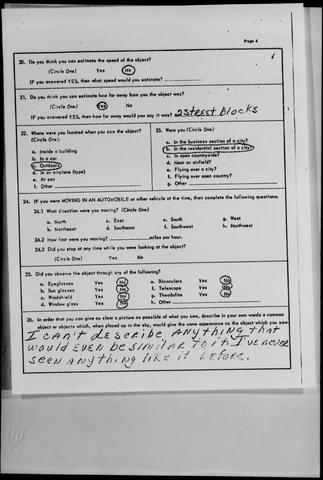 Page 4
20. Do you think you can estimate the speed of the object?
(Circle One) Yes No
IF you answered YES, then what speed would you estimate?
21. Do you think you can estimate how far away from you the object was?
(Circle One) Yes No
IF you answered YES, then how far away would you say it was? 2 street blocks
22. Where were you located when you saw the object?
(Circle One)
a. Inside a building
b. In a car
c. Outdoors
d. In an airplane (type)
e. At sea
f. Other
23. Were you (Circle One)
a. In the business section of a city?
b. In the residential section of a city?
c. In open countryside?
d. Near an airfield?
e. Flying over a city?
f. Flying over open country?
g. Other
24. IF you were MOVING IN AN AUTOMOBILE or other vehicle at the time, then complete the following questions:
24.1 What direction were you moving? (Circle One)
a. North c. East e. South g. West
b. Northeast d. Southeast f. Southwest h. Northwest
24.2 How fast were you moving? miles per hour.
24.3 Did you stop at any time while you were looking at the object?
(Circle One) Yes No
25. Did you observe the object through any of the following?
a. Eyeglasses Yes No e. Binoculars Yes No
b. Sun glasses Yes No f. Telescope Yes No
c. Windshield Yes No g. Theodolite Yes No
d. Window glass Yes No h. Other
26. In order that you can give as clear a picture as possible of what you saw, describe in your own words a common
object or objects which, when placed up in the sky, would give the same appearance as the object which you saw.
I CAN'T DESCRIBE ANYTHING THAT
WOULD EVEN BE SIMILAR TO IT. I'VE NEVER
SEEN ANYTHING LIKE IT BEFORE.